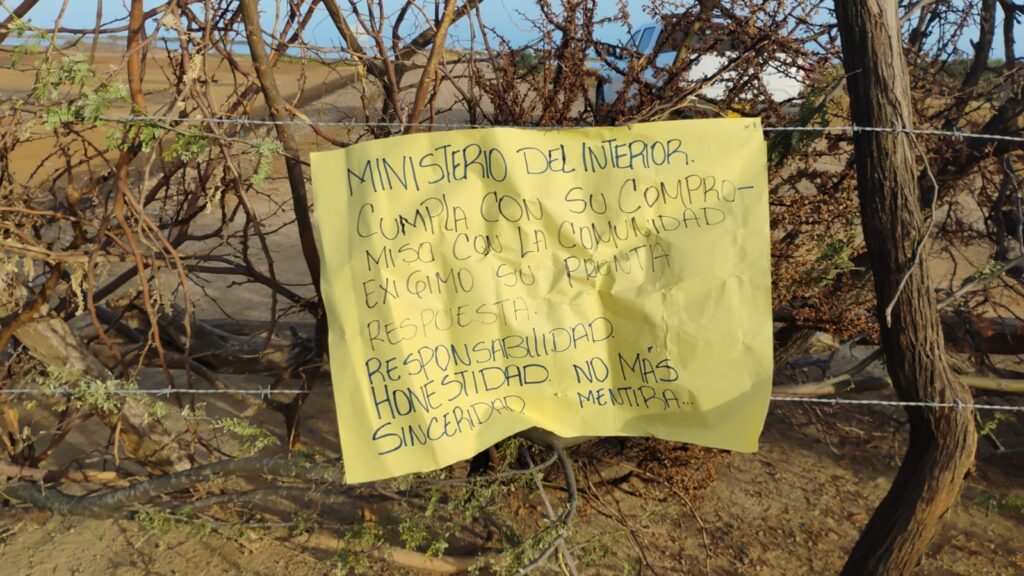 MINISTERIO DEL INTERIOR.
CUMPLA CON SU COMPRO-
MISO CON LA COMUNIDAD
EXIGIMO SU PRONTA
RESPUESTA.
RESPONSABILIDAD.
HONESTIDAD. NO MÁS
SINCERIDAD MENTIRA...